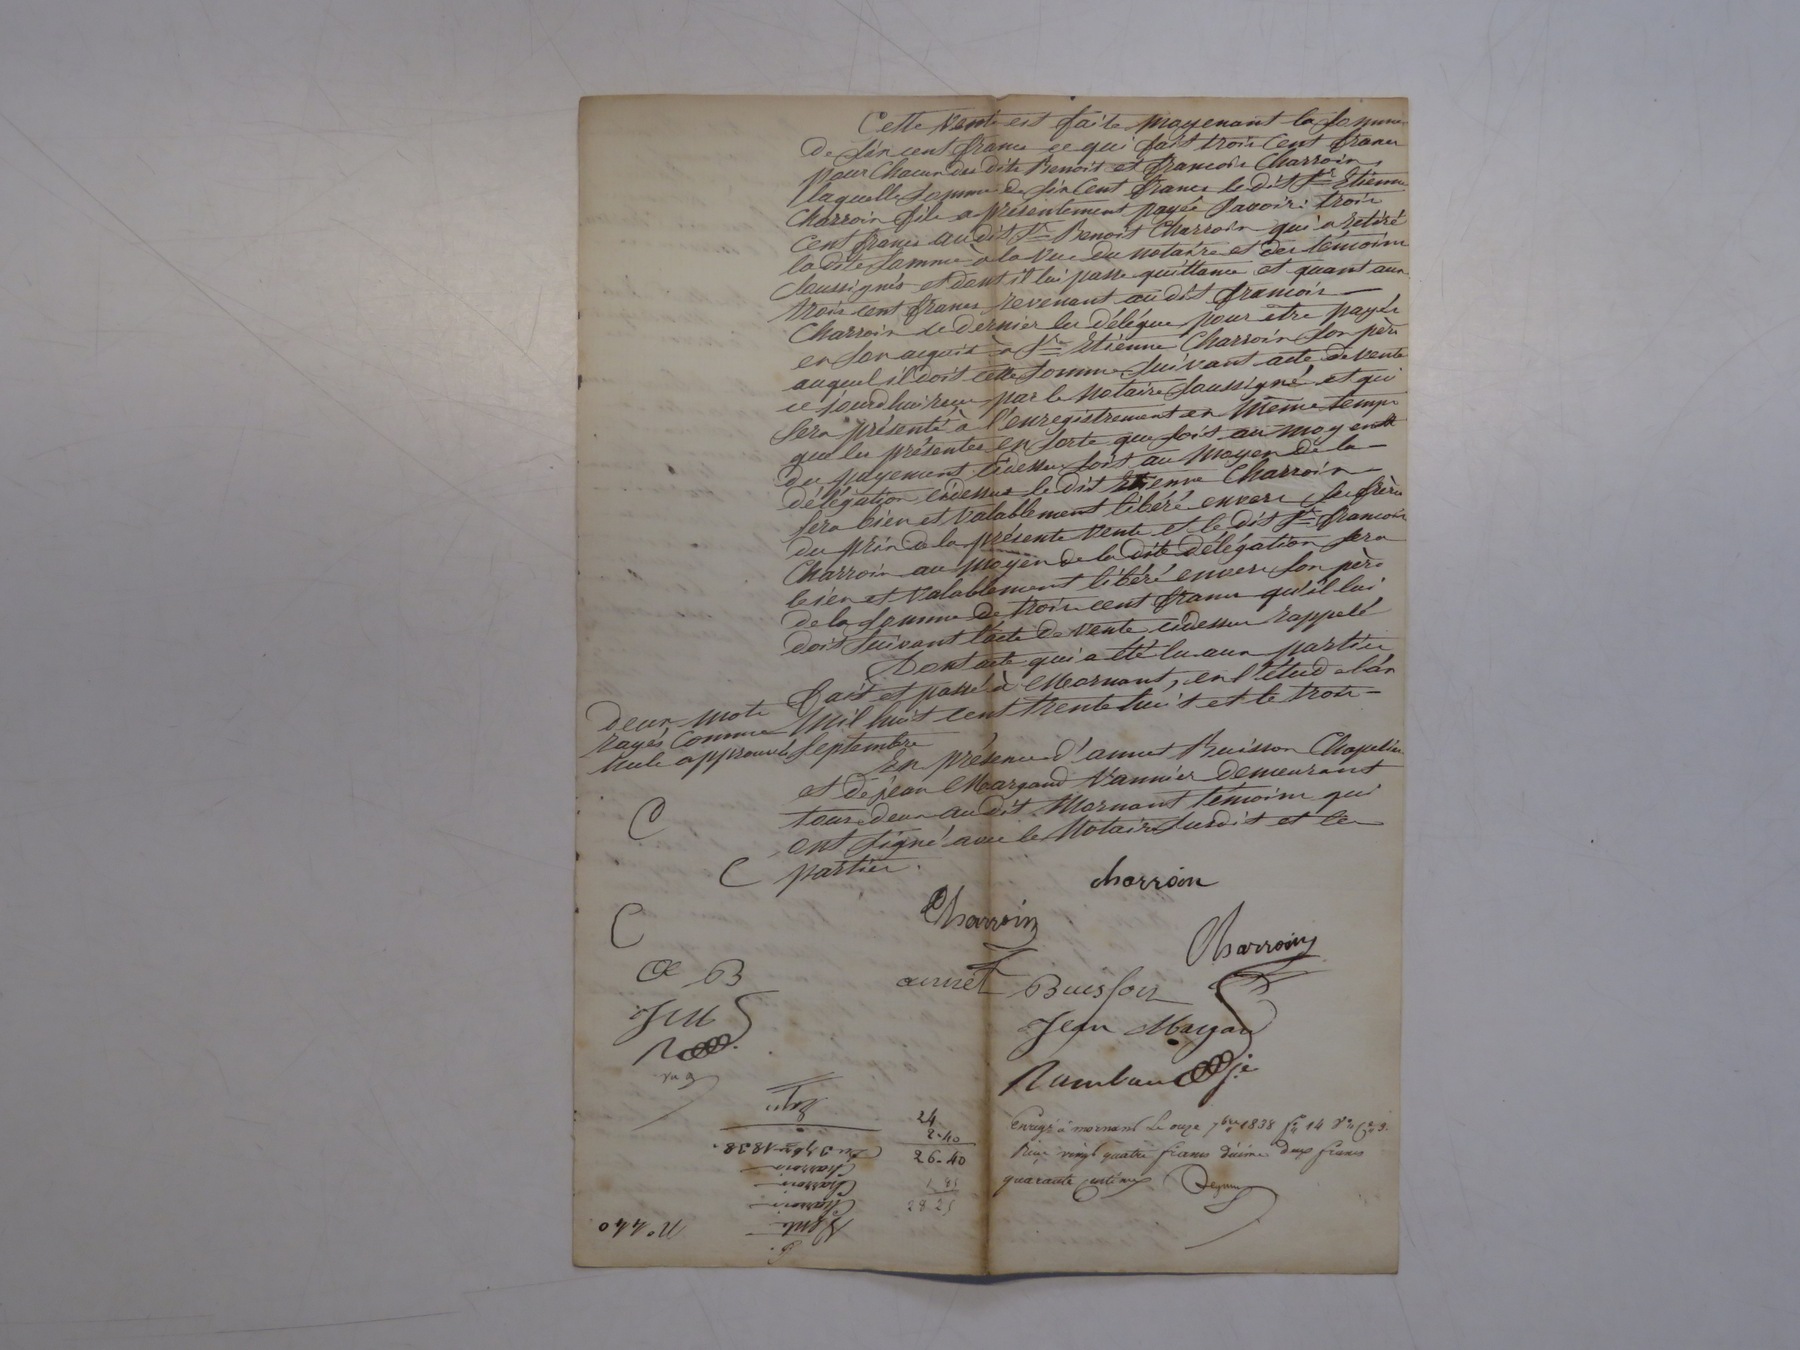 Cette vente est faite moyenant la somme
de six cent francs ce qui fait trois cent francs
pour chacun des dits Benoit et francois Charroin,
laquelle somme de six cent francs le dit Sr Etienne
Charroin fils a présentement payée savoir: trois
cent francs au dit Sr Benoit Charroin qui a retiré
la dite somme à la vue du notaire et des témoins
soussignés et dont il lui passe quittance et quant aux
trois cent francs revenant au dit francois
Charroin ce dernier les délégue pour etre payés
en son acquit à Sr Etienne Charroin son père
auquel il doit cette somme suivant acte de vente
ce jourdhui reçu par le notaire soussigné et qui
sera présenté à l'enregistrement en même temps
que les présentes en sorte que soit au moyen
du payement cidessus soit au moyen de la
délégation cidessus le dit Etienne Charroin
sera bien et valablement libéré envers ses frères
du prix de la présente vente et le dit Sr francois
Charroin au moyen de la dite délégation sera
bien et valablement libéré envers son père
de la somme de trois cent francs qu'il lui
doit suivant l'acte de vente cidessus rappelé
Dont acte qui a été lu aux parties
fait et passé à Mornant, en l'étude l'an
mil huit cent trente huit et le trois
septembre
deux mots
rayés comme
nuls approuvés
En présence d'annet Buisson Chapelier
et de jean Margand vannier demeurant
tous deux au dit Mornant témoins qui
ont signé avec le notaire susdit et les
parties.
C
C
C
charroin
Charroin
Charroin
œ B
annet Buisson
J M
Jean Margan
vu 9
24
2-40
26-40
28 25
Enregé à mornant le onze 7bre 1838 fo 14 Vo Ce 3.
Reçu vingt quatre francs décime deux francs
quarante centimes
Du 3 7bre 1838.
Charroin
Charroin
Charroin
Vente
No 440